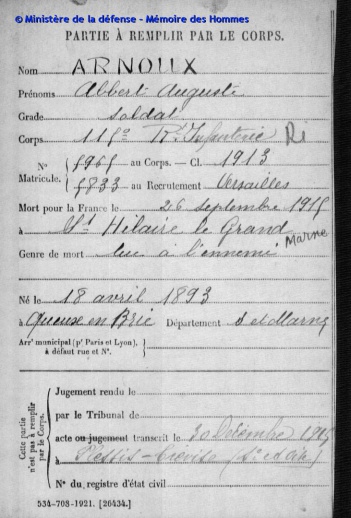 © Ministère de la défense - Mémoire des Hommes
PARTIE À REMPLIR PAR LE CORPS.
Nom ARNOUX
Prénoms Albert Auguste
Grade Soldat
Corps 115e Rt Infanterie RI
N° 5965 au Corps. - Cl. 1913
Matricule. 5833 au Recrutement Versailles
Mort pour la France le 26 septembre 1915
à St Hilaire le Grand Marne
Genre de mort tué à l'ennemi
Né le 18 avril 1893
à Queuse en Brie Département S et Marne
Arrt municipal (pr Paris et Lyon),
à défaut rue et N°.
Cette partie
n'est pas à remplir
par le Corps.
Jugement rendu le
par le Tribunal de
acte ou jugement transcrit le 30 Décembre 1915
à Plessis-Trévise (S. et O.)
N° du registre d'état civil
534-708-1921. [26434.]